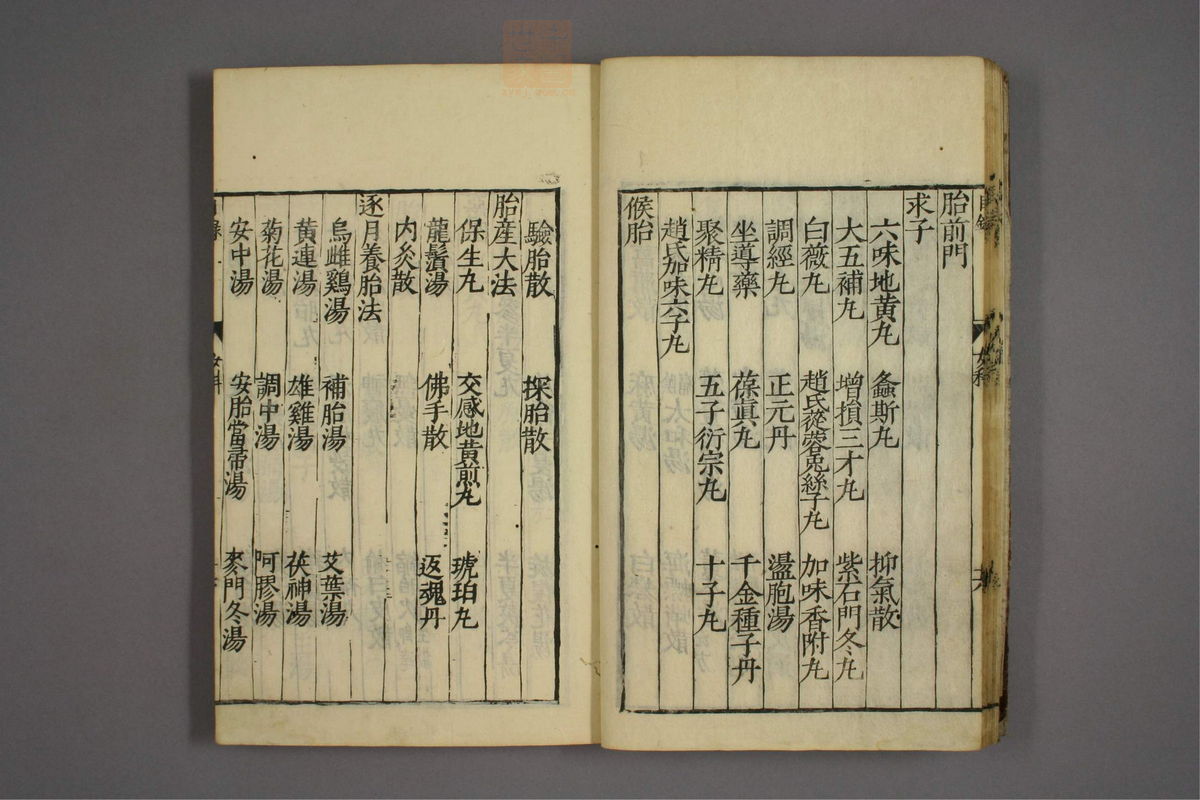 胎前門
求子
六味地黄丸　螽斯丸　抑氣散
大五補丸　增損三才丸　紫石門冬丸
白薇丸　趙氏蓯蓉兎絲子丸　加味香附丸
調經丸　正元丹　盪胞湯
坐導藥　葆眞丸　千金種子丹
聚精丸　五子衍宗丸　十子丸
趙氏加味六子丸
候胎
驗胎散　探胎散
胎産大法
保生丸　交感地黄煎丸　琥珀丸
龍鬚湯　佛手散　返魂丹
内炙散
逐月養胎法
烏雌鷄湯　補胎湯　艾葉湯
黄連湯　雄雞湯　茯神湯
菊花湯　調中湯　阿膠湯
安中湯　安胎當帚湯　麥門冬湯